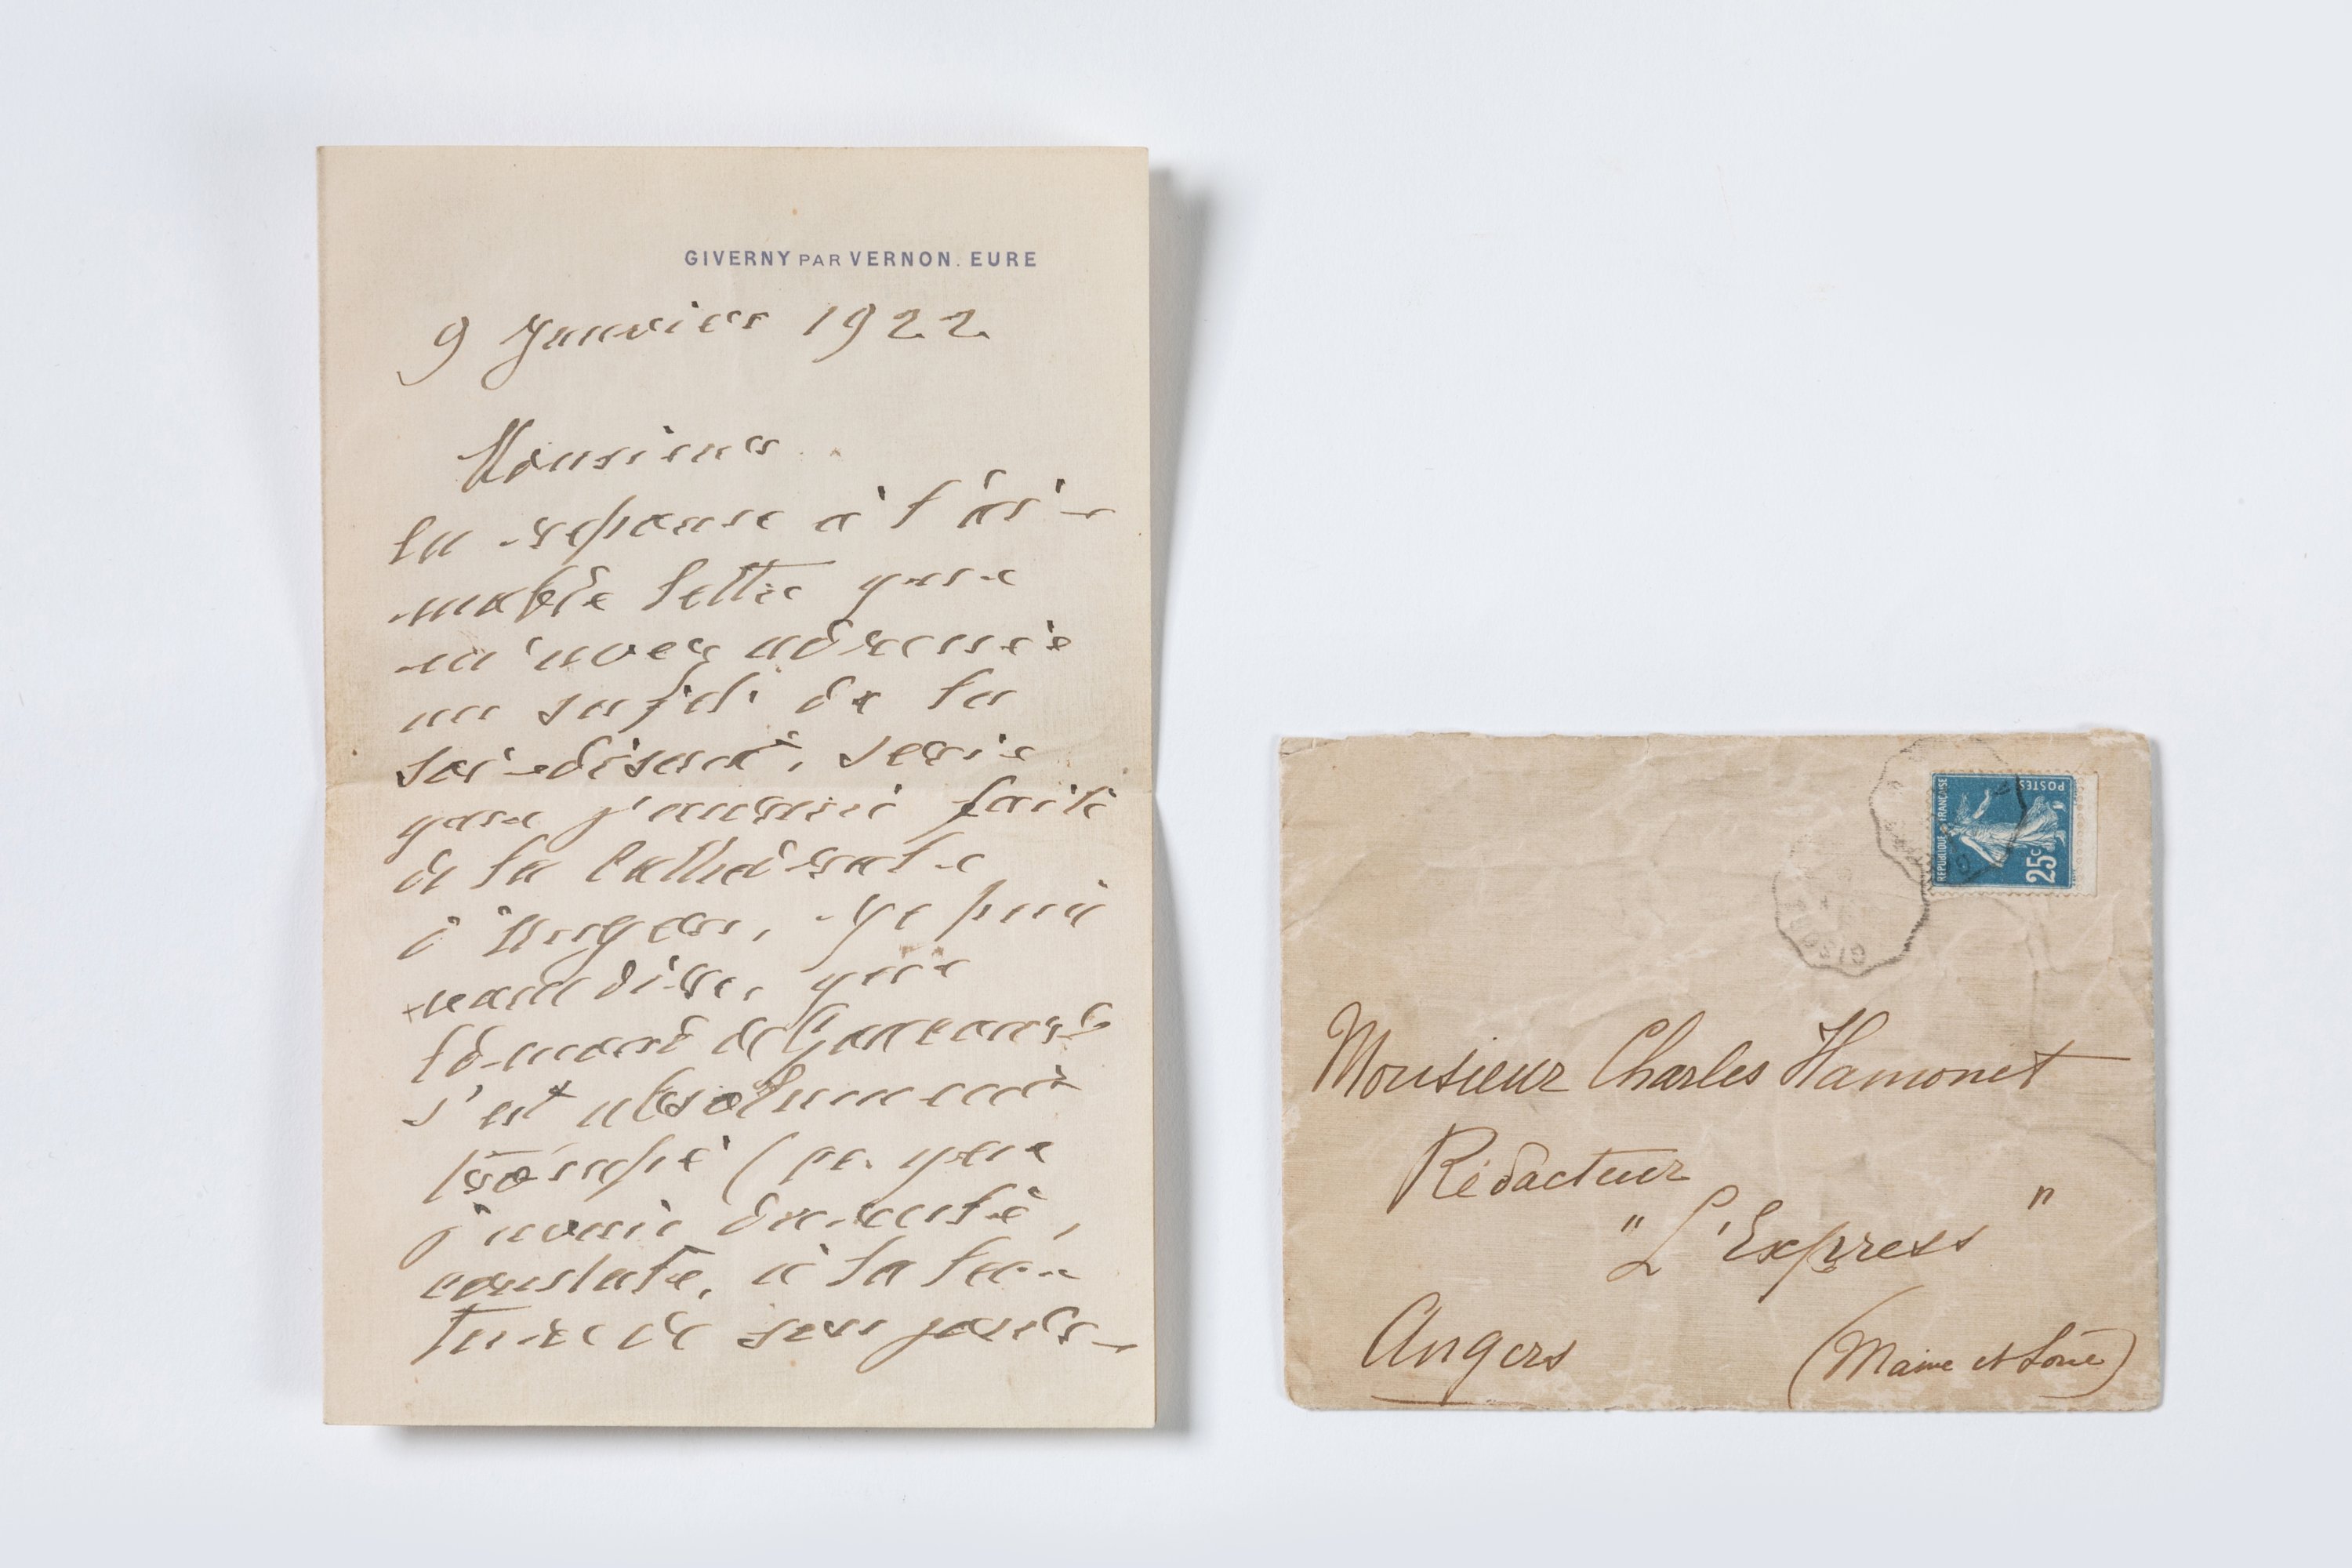 GIVERNY PAR VERNON. EURE
9 Janvier 1922
Monsieur
En reponse à l'ai-
mable lettre que
m'avez adressée
au sujet de la
soi-disant, serie
que j'aurai faite
de la Cathédrale
d'Angers, je puis
vous dire, que
Edmond de Goncourt
s'est absolument
trompé (ce que
j'avais du reste,
constaté, à la lec-
ture de son jour-
REPUBLIQUE FRANÇAISE
POSTES
25c
GISORS
Monsieur Charles Hamonet
Rédacteur
"L'Express"
Angers (Maine et Loire)